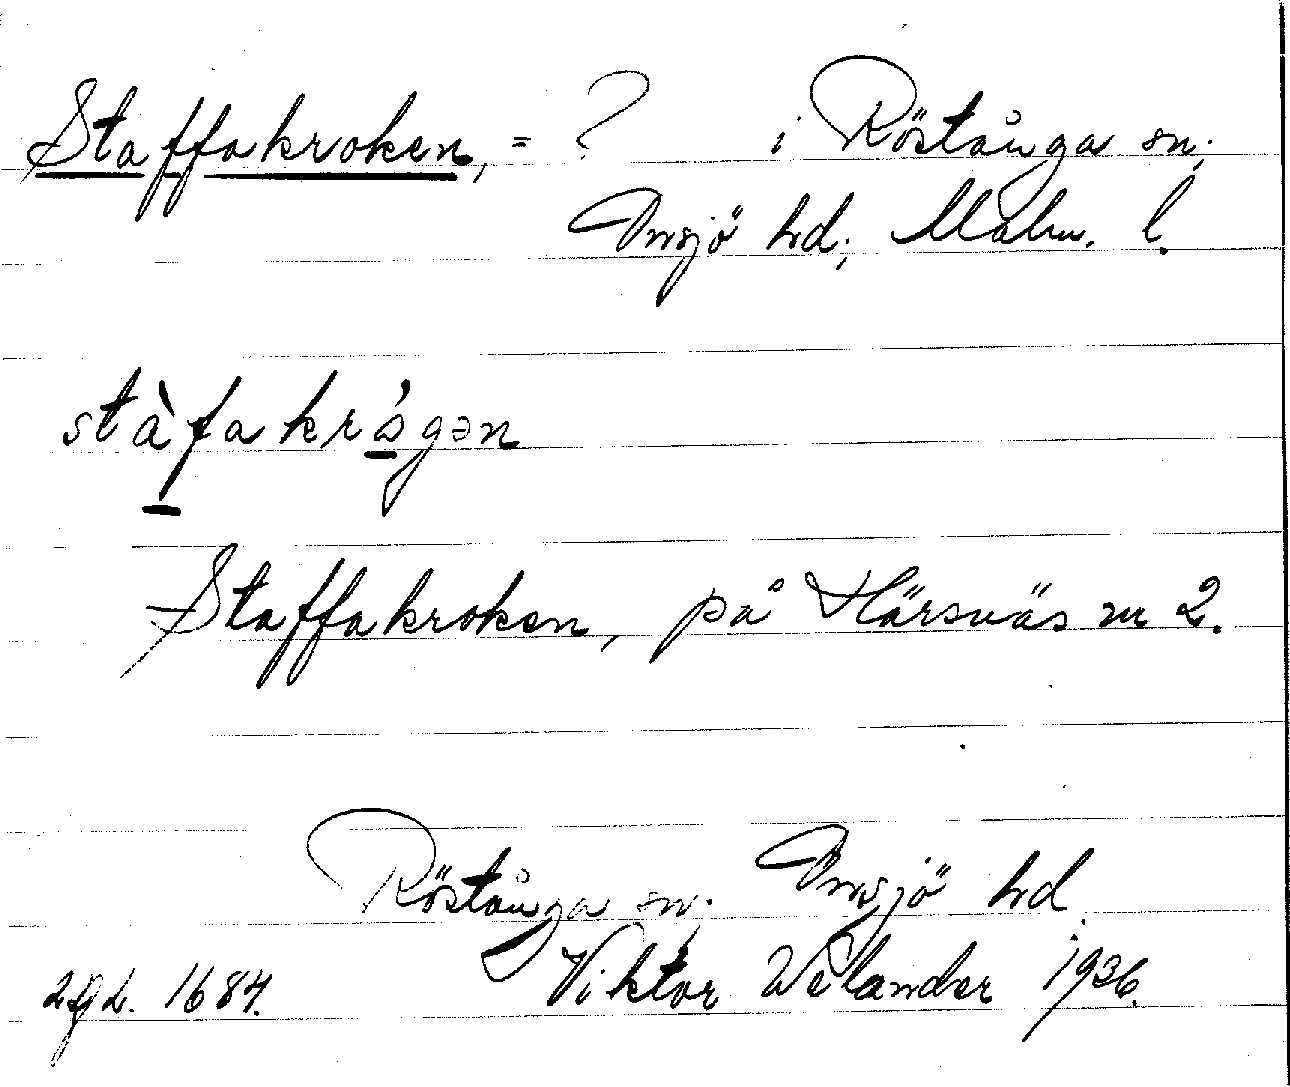 Staffakroken, = ? i Röstånga sn;
Onsjö hd; Malm. l.
stàfakrågən
Staffakroken, på Härsnäs nr 2.
Röstånga sn. Onsjö hd.
Viktor Welander 1936.
1684.